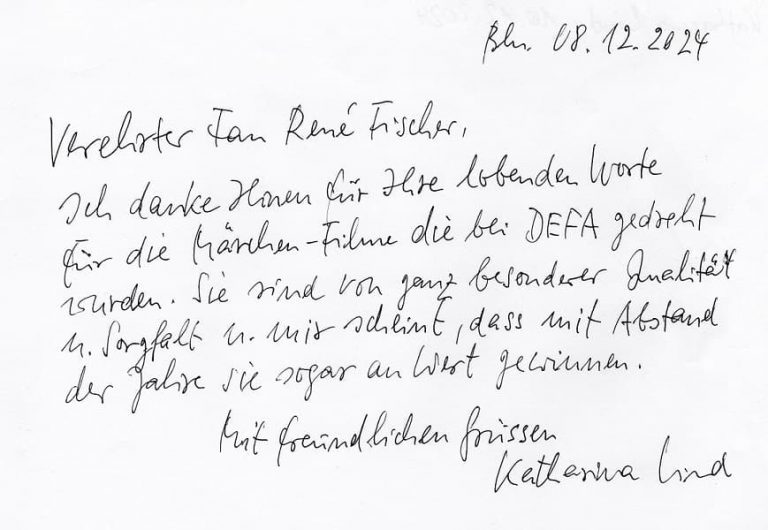 Bln. 08.12.2024
Verehrter Fan René Fischer,
Ich danke Ihnen für Ihre lobenden Worte
für die Märchen-Filme die bei DEFA gedreht
wurden. Sie sind von ganz besonderer Qualität
u. Sorgfalt u. mir scheint, dass mit Abstand
der Jahre sie sogar an Wert gewinnen.
Mit freundlichen Grüssen
Katharina Lind